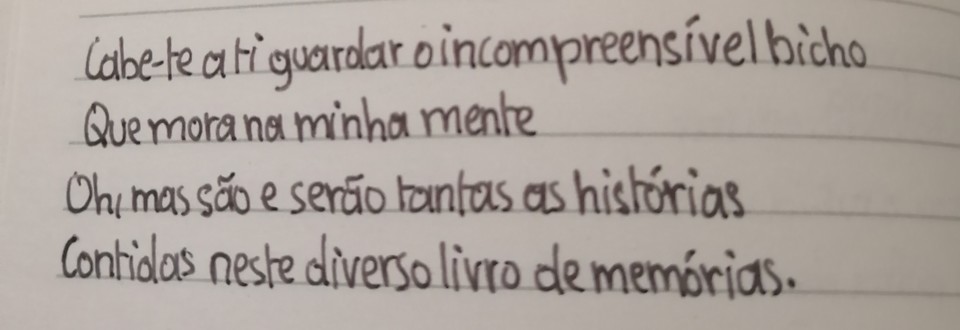 Cabe-te a ti guardar o incompreensível bicho
Que mora na minha mente
Oh, mas são e serão tantas as histórias
Contidas neste diverso livro de memórias.